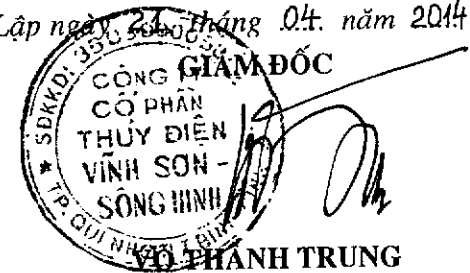 Lập ngày 21 tháng 04 năm 2014
GIÁM ĐỐC
SĐKKD: 350
CÔNG
CỔ PHẦN
THỦY ĐIỆN
VĨNH SƠN -
SÔNG HINH
★ TP. QUI NHƠN
VÕ THÀNH TRUNG